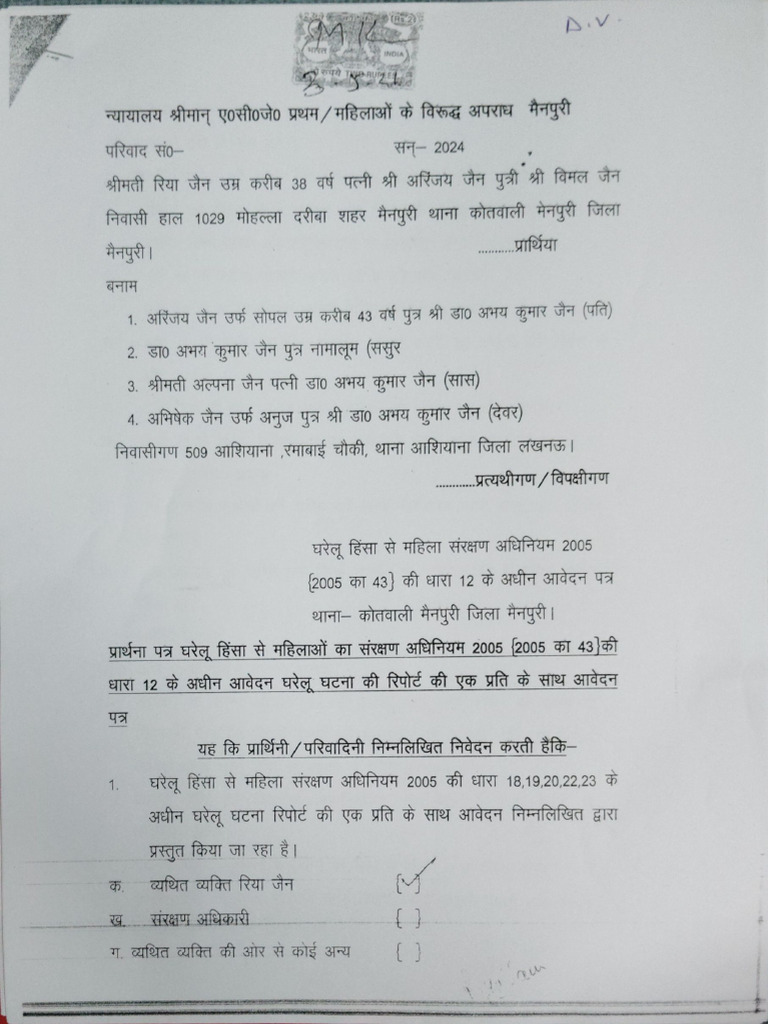 D.V.
भारत
INDIA
न्यायालय श्रीमान् ए0सी0जे0 प्रथम/महिलाओं के विरूद्ध अपराध मैनपुरी
परिवाद सं0– सन्– 2024
श्रीमती रिया जैन उम्र करीब 38 वर्ष पत्नी श्री अरिंजय जैन पुत्री श्री विमल जैन
निवासी हाल 1029 मोहल्ला दरीबा शहर मैनपुरी थाना कोतवाली मेनपुरी जिला
मैनपुरी। ...........प्रार्थिया
बनाम
1. अरिंजय जैन उर्फ सोपल उम्र करीब 43 वर्ष पुत्र श्री डा0 अभय कुमार जैन (पति)
2. डा0 अभय कुमार जैन पुत्र नामालूम (ससुर
3. श्रीमती अल्पना जैन पत्नी डा0 अभय कुमार जैन (सास)
4. अभिषेक जैन उर्फ अनुज पुत्र श्री डा0 अभय कुमार जैन (देवर)
निवासीगण 509 आशियाना ,रमाबाई चौकी, थाना आशियाना जिला लखनऊ।
............प्रत्यथीगण/विपक्षीगण
घरेलू हिंसा से महिला संरक्षण अधिनियम 2005
{2005 का 43} की धारा 12 के अधीन आवेदन पत्र
थाना– कोतवाली मैनपुरी जिला मैनपुरी।
प्रार्थना पत्र घरेलू हिंसा से महिलाओं का संरक्षण अधिनियम 2005 {2005 का 43}की
धारा 12 के अधीन आवेदन घरेलू घटना की रिपोर्ट की एक प्रति के साथ आवेदन
पत्र
यह कि प्रार्थिनी/परिवादिनी निम्नलिखित निवेदन करती हैकि–
1. घरेलू हिंसा से महिला संरक्षण अधिनियम 2005 की धारा 18,19,20,22,23 के
अधीन घरेलू घटना रिपोर्ट की एक प्रति के साथ आवेदन निम्नलिखित द्वारा
प्रस्तुत किया जा रहा है।
क. व्यथित व्यक्ति रिया जैन {✓}
ख. संरक्षण अधिकारी { }
ग. व्यथित व्यक्ति की ओर से कोई अन्य { }